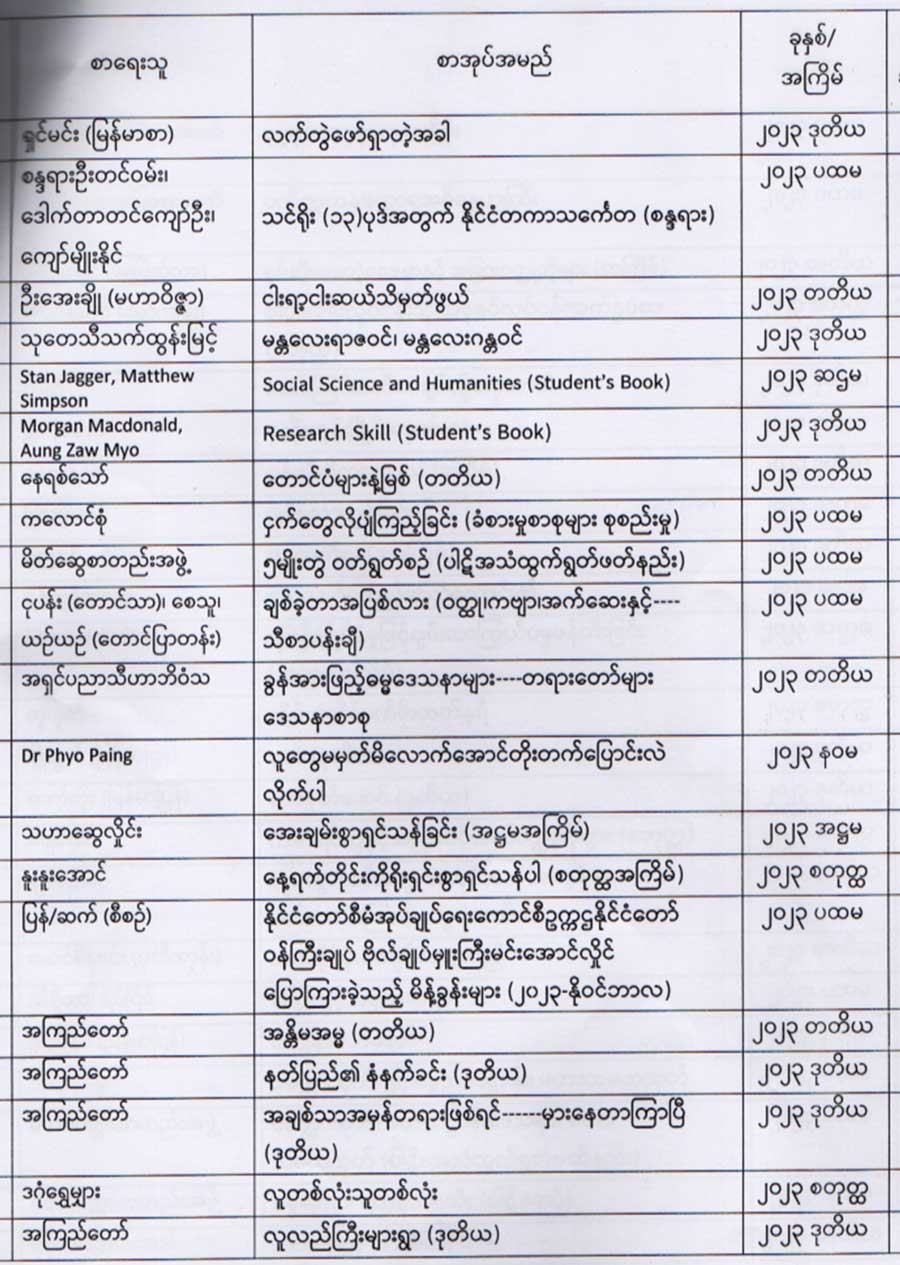 စာရေးသူ
စာအုပ်အမည်
ခုနှစ်/
အကြိမ်
ရှုင်မင်း (မြန်မာစာ)
လက်တွဲဖော်ရှာတဲ့အခါ
၂၀၂၃ ဒုတိယ
စန္ဒရားဦးတင်ဝမ်း၊
ဒေါက်တာတင်ကျော်ဦး၊
ကျော်မျိုးနိုင်
သင်ရိုး (၁၃)ပုဒ်အတွက် နိုင်ငံတကာသင်္ကေတ (စန္ဒရား)
၂၀၂၃ ပထမ
ဦးအေးချို (မဟာဝိဇ္ဇာ)
ငါးရာ့ငါးဆယ်သိမှတ်ဖွယ်
၂၀၂၃ တတိယ
သုတေသီသက်ထွန်းမြင့်
မန္တလေးရာဇဝင်၊ မန္တလေးဂန္တဝင်
၂၀၂၃ ဒုတိယ
Stan Jagger, Matthew
Simpson
Social Science and Humanities (Student's Book)
၂၀၂၃ ဆဌမ
Morgan Macdonald,
Aung Zaw Myo
Research Skill (Student's Book)
၂၀၂၃ ဒုတိယ
နေရစ်သော်
တောင်ပံများနဲ့မြစ် (တတိယ)
၂၀၂၃ တတိယ
ကလောင်စုံ
ငှက်တွေလိုပျံကြည့်ခြင်း (ခံစားမှုစာစုများ စုစည်းမှု)
၂၀၂၃ ပထမ
မိတ်ဆွေစာတည်းအဖွဲ့
၅မျိုးတွဲ ဝတ်ရွတ်စဉ် (ပါဠိအသံထွက်ရွတ်ဖတ်နည်း)
၂၀၂၃ ပထမ
ငှပန်း (တောင်သာ)၊ စေသူ၊
ယဉ်ယဉ် (တောင်ပြာတန်း)
ချစ်ခဲ့တာအပြစ်လား (ဝတ္ထု၊ကဗျာ၊အက်ဆေးနှင့်----
သီစာပန်းချီ)
၂၀၂၃ ပထမ
အရှင်ပညာသီဟာဘိဝံသ
ခွန်အားဖြည့်ဓမ္မဒေသနာများ----တရားတော်များ
ဒေသနာစာစု
၂၀၂၃ တတိယ
Dr Phyo Paing
လူတွေမမှတ်မိလောက်အောင်တိုးတက်ပြောင်းလဲ
လိုက်ပါ
၂၀၂၃ နဝမ
သဟာဆွေလှိုင်း
အေးချမ်းစွာရှင်သန်ခြင်း (အဋ္ဌမအကြိမ်)
၂၀၂၃ အဋ္ဌမ
နူးနူးအောင်
နေ့ရက်တိုင်းကိုရိုးရှင်းစွာရှင်သန်ပါ (စတုတ္ထအကြိမ်)
၂၀၂၃ စတုတ္ထ
ပြန်/ဆက် (စီစဉ်)
နိုင်ငံတော်စီမံအုပ်ချုပ်ရေးကောင်စီဥက္ကဌနိုင်ငံတော်
ဝန်ကြီးချုပ် ဗိုလ်ချုပ်မှူးကြီးမင်းအောင်လှိုင်
ပြောကြားခဲ့သည့် မိန့်ခွန်းများ (၂၀၂၃-နိုဝင်ဘာလ)
၂၀၂၃ ပထမ
အကြည်တော်
အန္တိမအမ္မ (တတိယ)
၂၀၂၃ တတိယ
အကြည်တော်
နတ်ပြည်၏ နံနက်ခင်း (ဒုတိယ)
၂၀၂၃ ဒုတိယ
အကြည်တော်
အချစ်သာအမှန်တရားဖြစ်ရင်------မှားနေတာကြာပြီ
(ဒုတိယ)
၂၀၂၃ ဒုတိယ
ဒဂုံရွှေမျှား
လူတစ်လုံးသူတစ်လုံး
၂၀၂၃ စတုတ္ထ
အကြည်တော်
လူလည်ကြီးများရွာ (ဒုတိယ)
၂၀၂၃ ဒုတိယ